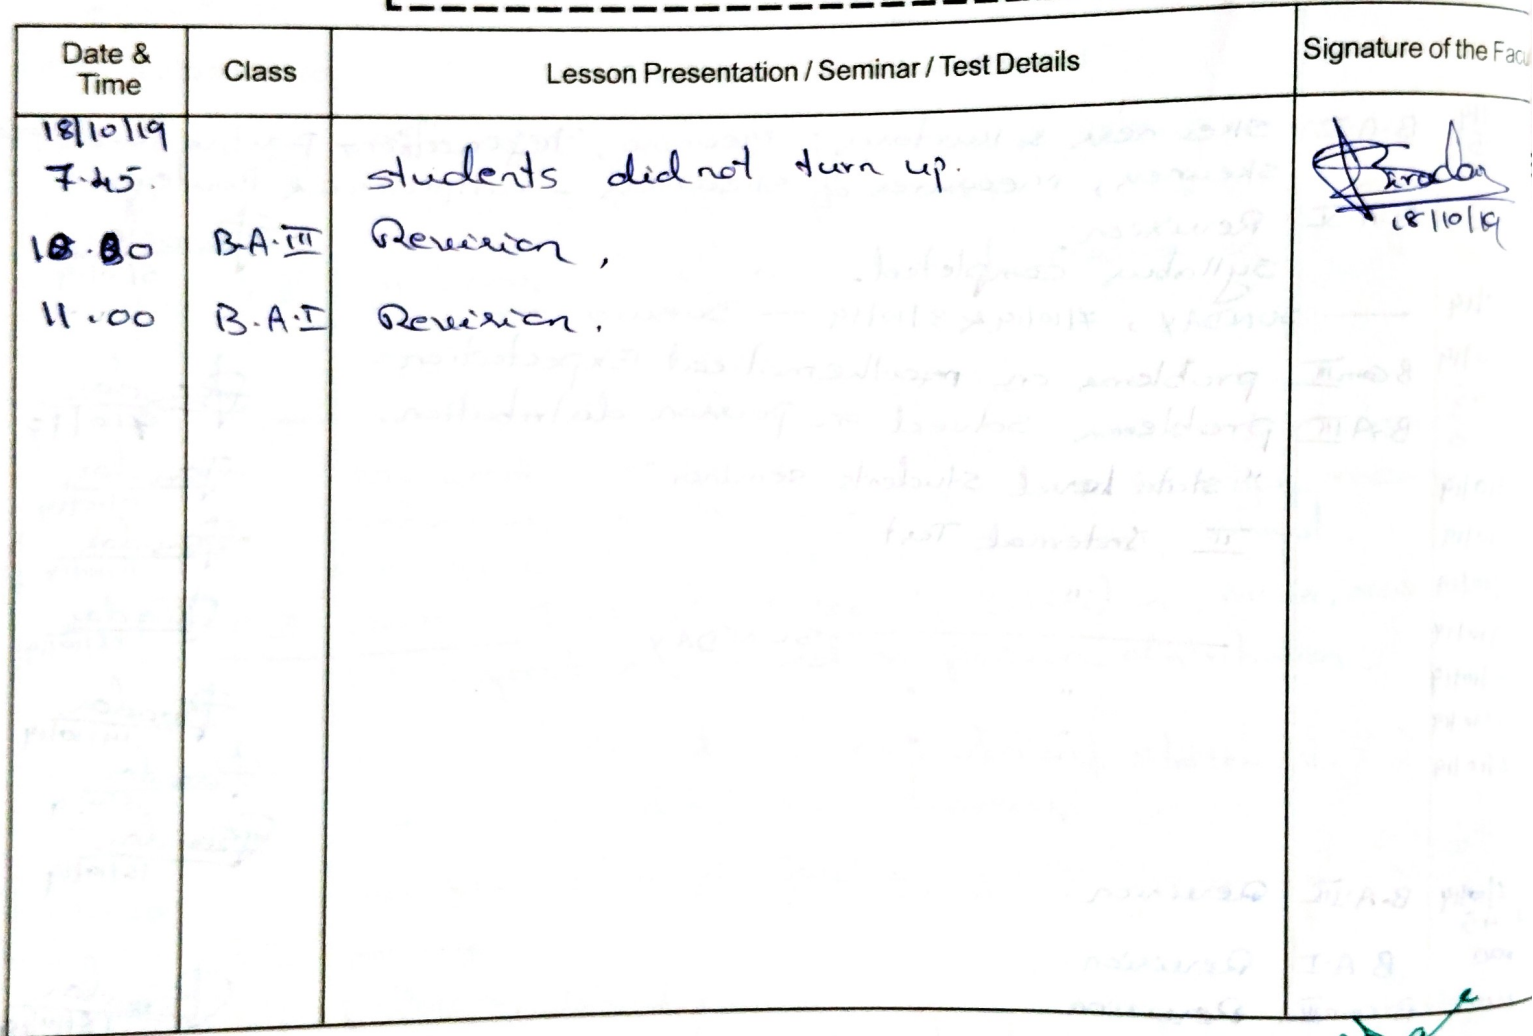 Date & Time Class Lesson Presentation / Seminar / Test Details Signature of the
18/10/19
7.45. students did not turn up.
B.A.III Revision,
11.00 B.A.I Revision.
18/10/19